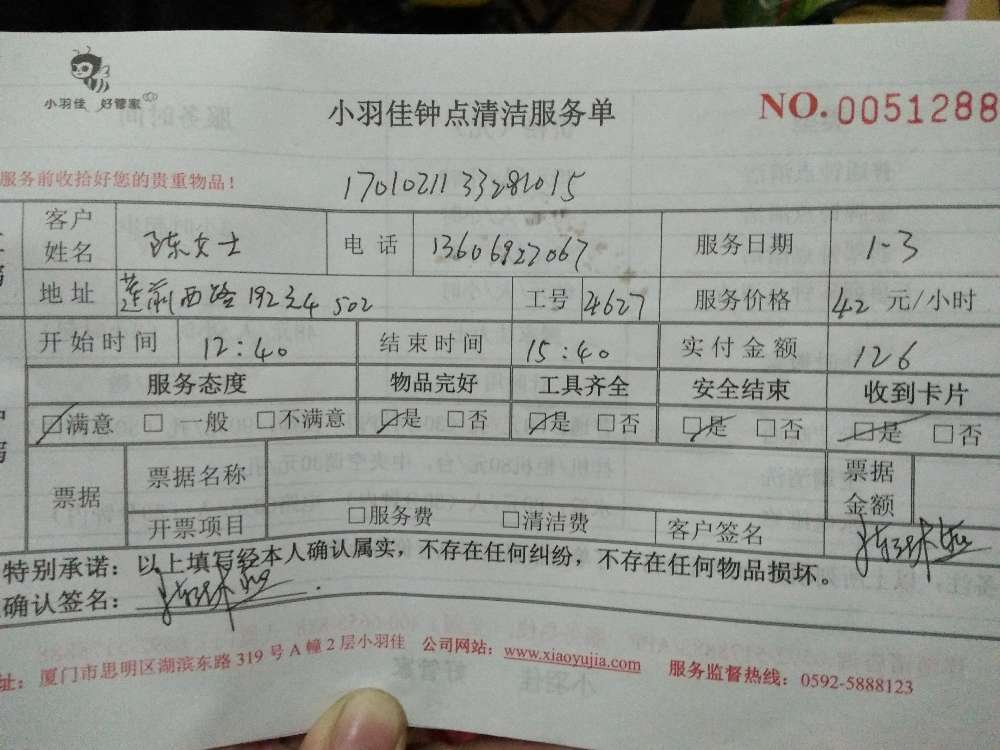 小羽佳 好管家
小羽佳钟点清洁服务单
NO.0051288
服务前收拾好您的贵重物品!
客户姓名 陈女士 电话 13606927067 服务日期 1-3
地址 莲前西路192之4 502 工号 24627 服务价格 42 元/小时
开始时间 12:40 结束时间 15:40 实付金额 126
服务态度 物品完好 工具齐全 安全结束 收到卡片
☑满意 □一般 □不满意 ☑是 □否 ☑是 □否 ☑是 □否 ☑是 □否
票据 票据名称 票据金额
开票项目 □服务费 □清洁费 客户签名
特别承诺:以上填写经本人确认属实,不存在任何纠纷,不存在任何物品损坏。
确认签名:
址:厦门市思明区湖滨东路319号A幢2层小羽佳 公司网站:www.xiaoyujia.com 服务监督热线:0592-5888123